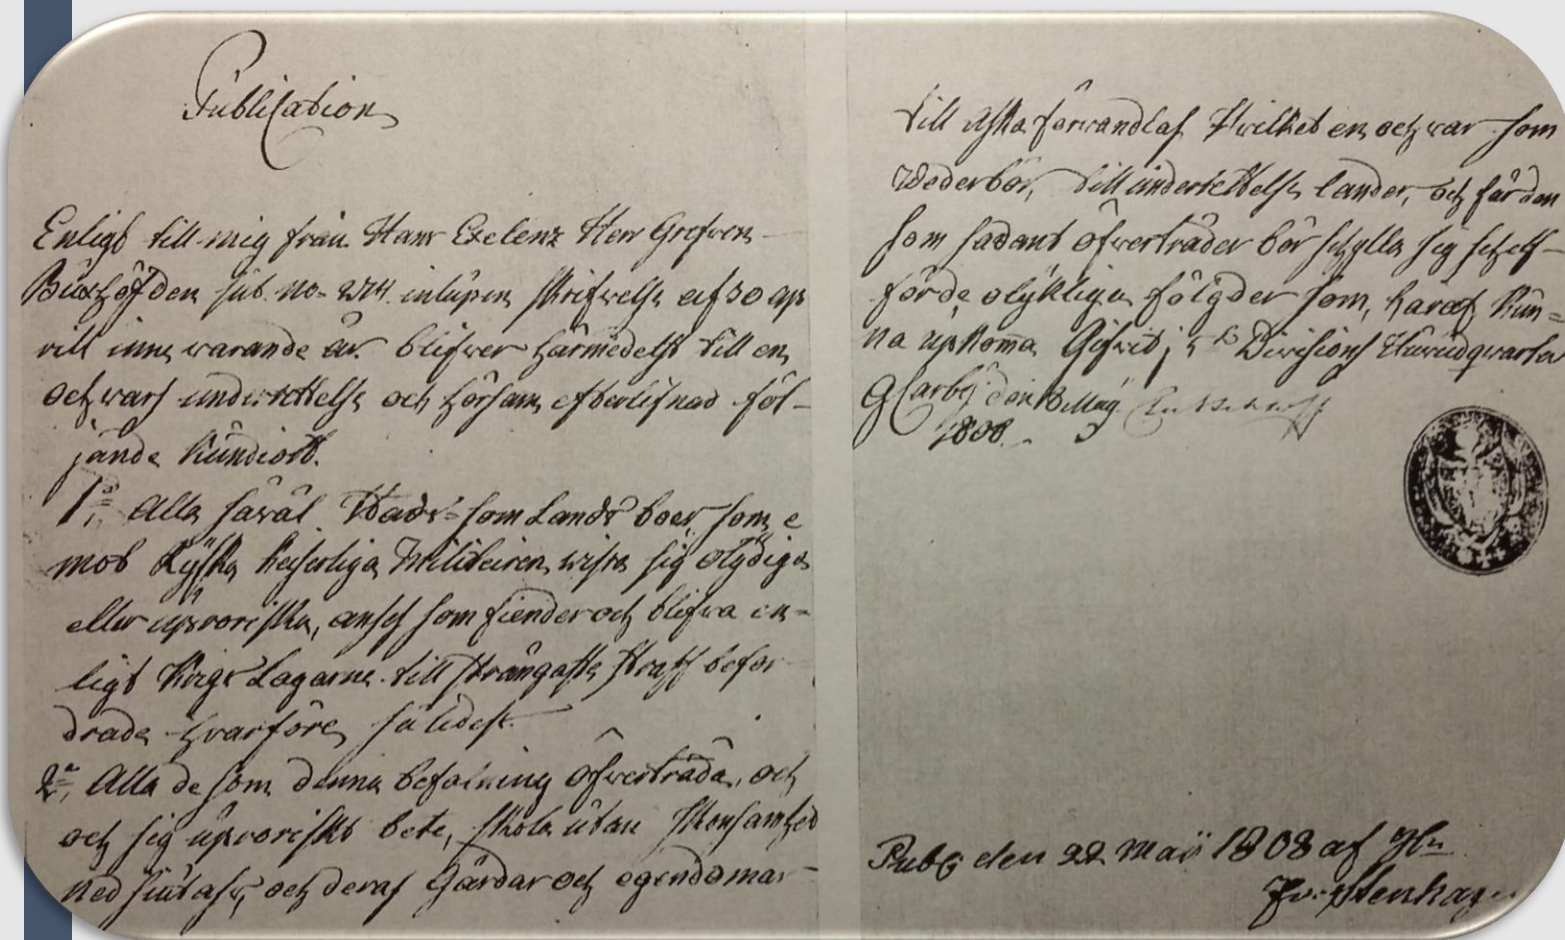 Publication
Enligt till mig från Hans Exelenz Herr Grefven
Buxhöfden sub. no. 274 inlupen skrifvelse af 30 ap
rill inne varande år blifver härmedelst till en
och vars underrettelse och hörsam efterlefnad föl-
jande kundiort.
1o Alla såväl Stads- som Lands boer, som e
mot Ryska keiserliga Militeiren wisa sig olydiga
eller uproriska, anses som fiender och blifva en-
ligt Krigs Lagarne till strängaste straff befor
drade hvarföre således
2o Alla de som denna befalning öfverträda, och
och sig uproriskt bete, skola utan skonsamhed
ned siutas, och deras Gårdar och egendomar
till aska förvandlas Hvilket en och var som
Wederbör, till underrettelse länder, och får den
som sådant öfverträder bör schylla sig schelf
för de olykliga fölgder som, häraf kun-
na upkomma Gifvit i 5te Divisions Huvudqvarter
GCarby den 8 May
1808
Publ den 22 Maii 1808 af
Stenhagen